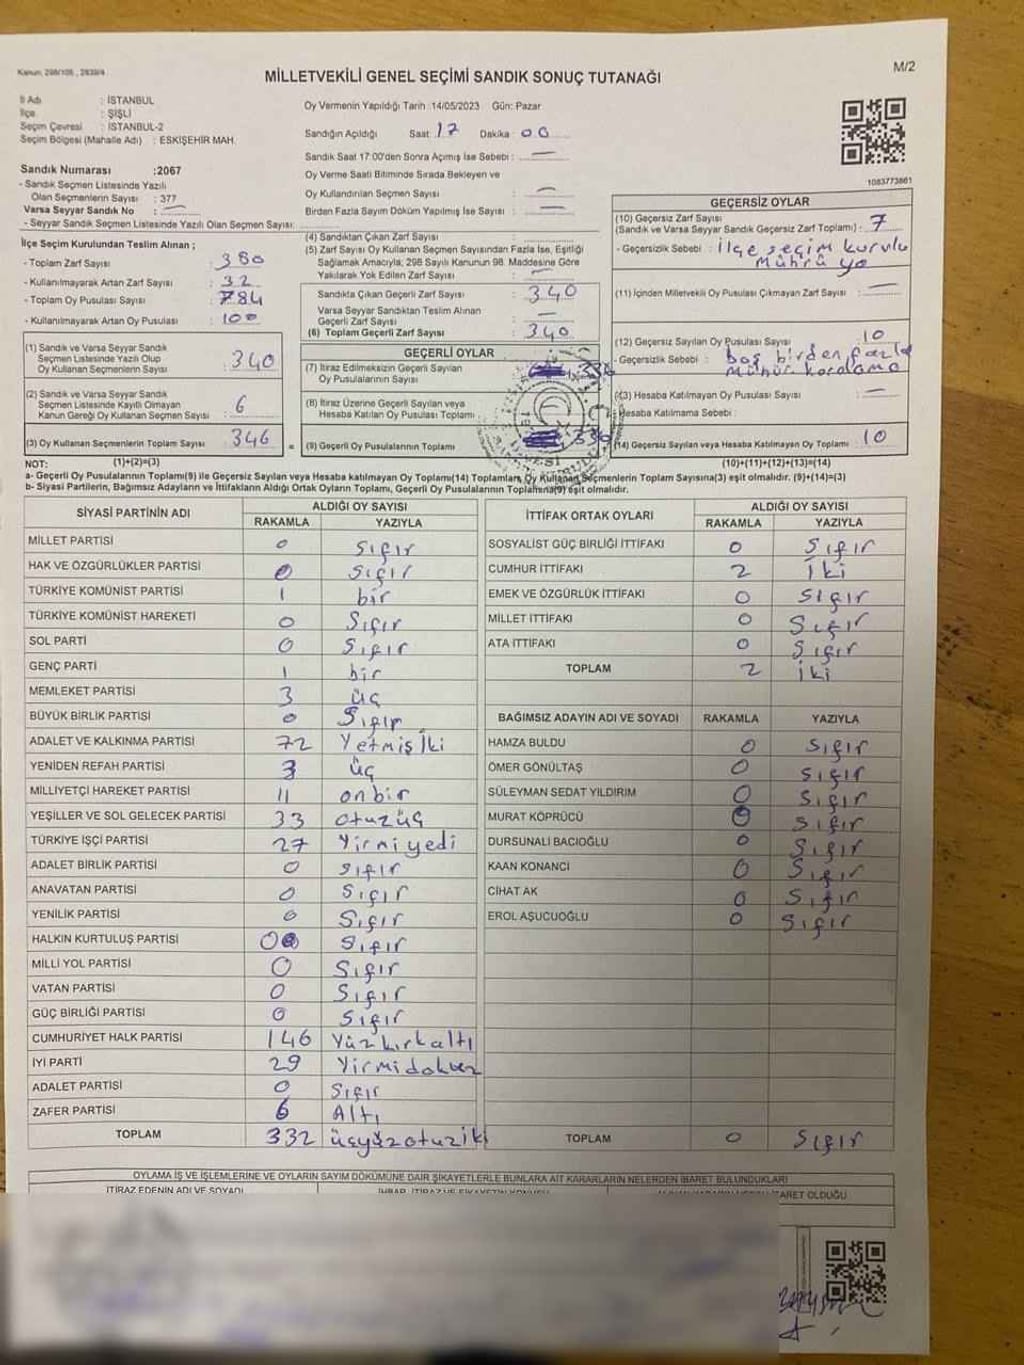 Kanun: 298/105 , 2839/4
M/2
MİLLETVEKİLİ GENEL SEÇİMİ SANDIK SONUÇ TUTANAĞI
İl Adı : İSTANBUL
İlçe : ŞİŞLİ
Seçim Çevresi : İSTANBUL-2
Seçim Bölgesi (Mahalle Adı) : ESKİŞEHİR MAH.
Sandık Numarası :2067
- Sandık Seçmen Listesinde Yazılı
Olan Seçmenlerin Sayısı : 377
Varsa Seyyar Sandık No : —
- Seyyar Sandık Seçmen Listesinde Yazılı Olan Seçmen Sayısı:
Oy Vermenin Yapıldığı Tarih :14/05/2023 Gün: Pazar
Sandığın Açıldığı Saat: 17 Dakika : 00
Sandık Saat 17:00'den Sonra Açımış İse Sebebi : —
Oy Verme Saati Bitiminde Sırada Bekleyen ve
Oy Kullandırılan Seçmen Sayısı : —
Birden Fazla Sayım Döküm Yapılmış İse Sayısı : —
1083773861
İlçe Seçim Kurulundan Teslim Alınan ;
- Toplam Zarf Sayısı : 380
- Kullanılmayarak Artan Zarf Sayısı : 32
- Toplam Oy Pusulası Sayısı : 784
- Kullanılmayarak Artan Oy Pusulası : 100
(1) Sandık ve Varsa Seyyar Sandık
Seçmen Listesinde Yazılı Olup
Oy Kullanan Seçmenlerin Sayısı : 340
(2) Sandık ve Varsa Seyyar Sandık
Seçmen Listesinde Kayıtlı Olmayan
Kanun Gereği Oy Kullanan Seçmen Sayısı : 6
(3) Oy Kullanan Seçmenlerin Toplam Sayısı : 346
(4) Sandıktan Çıkan Zarf Sayısı :
(5) Zarf Sayısı Oy Kullanan Seçmen Sayısından Fazla İse, Eşitliği
Sağlamak Amacıyla; 298 Sayılı Kanunun 98. Maddesine Göre
Yakılarak Yok Edilen Zarf Sayısı : —
Sandıkta Çıkan Geçerli Zarf Sayısı : 340
Varsa Seyyar Sandıktan Teslim Alınan
Geçerli Zarf Sayısı : —
(6) Toplam Geçerli Zarf Sayısı : 340
GEÇERLİ OYLAR
(7) İtiraz Edilmeksizin Geçerli Sayılan
Oy Pusulalarının Sayısı : 336
(8) İtiraz Üzerine Geçerli Sayılan veya
Hesaba Katılan Oy Pusulası Toplamı :
= (9) Geçerli Oy Pusulalarının Toplamı : 336
GEÇERSİZ OYLAR
(10) Geçersiz Zarf Sayısı
(Sandık ve Varsa Seyyar Sandık Geçersiz Zarf Toplamı) : 7
- Geçersizlik Sebebi : İlçe seçim kurulu
Mührü yo
(11) İçinden Milletvekili Oy Pusulası Çıkmayan Zarf Sayısı : —
(12) Geçersiz Sayılan Oy Pusulası Sayısı : 10
- Geçersizlik Sebebi : boş birden fazla
mühür karalama
(13) Hesaba Katılmayan Oy Pusulası Sayısı : —
Hesaba Katılmama Sebebi :
(14) Geçersiz Sayılan veya Hesaba Katılmayan Oy Toplamı : 10
NOT: (1)+(2)=(3) (10)+(11)+(12)+(13)=(14)
a- Geçerli Oy Pusulalarının Toplamı(9) ile Geçersiz Sayılan veya Hesaba katılmayan Oy Toplamı(14) Toplamları, Oy Kullanan Seçmenlerin Toplam Sayısına(3) eşit olmalıdır. (9)+(14)=(3)
b- Siyasi Partilerin, Bağımsız Adayların ve İttifakların Aldığı Ortak Oyların Toplamı, Geçerli Oy Pusulalarının Toplamına(9) eşit olmalıdır.
SİYASİ PARTİNİN ADI ALDIĞI OY SAYISI
RAKAMLA YAZIYLA
MİLLET PARTİSİ 0 Sıfır
HAK VE ÖZGÜRLÜKLER PARTİSİ 0 Sıfır
TÜRKİYE KOMÜNİST PARTİSİ 1 bir
TÜRKİYE KOMÜNİST HAREKETİ 0 Sıfır
SOL PARTİ 0 Sıfır
GENÇ PARTİ 1 bir
MEMLEKET PARTİSİ 3 üç
BÜYÜK BİRLİK PARTİSİ 0 Sıfır
ADALET VE KALKINMA PARTİSİ 72 Yetmiş İki
YENİDEN REFAH PARTİSİ 3 üç
MİLLİYETÇİ HAREKET PARTİSİ 11 onbir
YEŞİLLER VE SOL GELECEK PARTİSİ 33 otuzüç
TÜRKİYE İŞÇİ PARTİSİ 27 Yirmi yedi
ADALET BİRLİK PARTİSİ 0 Sıfır
ANAVATAN PARTİSİ 0 Sıfır
YENİLİK PARTİSİ 0 Sıfır
HALKIN KURTULUŞ PARTİSİ 0 Sıfır
MİLLİ YOL PARTİSİ 0 Sıfır
VATAN PARTİSİ 0 Sıfır
GÜÇ BİRLİĞİ PARTİSİ 0 Sıfır
CUMHURİYET HALK PARTİSİ 146 Yüzkırkaltı
İYİ PARTİ 29 Yirmidokuz
ADALET PARTİSİ 0 Sıfır
ZAFER PARTİSİ 6 Altı
TOPLAM 332 üçyüzotuziki
İTTİFAK ORTAK OYLARI ALDIĞI OY SAYISI
RAKAMLA YAZIYLA
SOSYALİST GÜÇ BİRLİĞİ İTTİFAKI 0 Sıfır
CUMHUR İTTİFAKI 2 İki
EMEK VE ÖZGÜRLÜK İTTİFAKI 0 Sıfır
MİLLET İTTİFAKI 0 Sıfır
ATA İTTİFAKI 0 Sıfır
TOPLAM 2 İki
BAĞIMSIZ ADAYIN ADI VE SOYADI RAKAMLA YAZIYLA
HAMZA BULDU 0 Sıfır
ÖMER GÖNÜLTAŞ 0 Sıfır
SÜLEYMAN SEDAT YILDIRIM 0 Sıfır
MURAT KÖPRÜCÜ 0 Sıfır
DURSUNALİ BACIOĞLU 0 Sıfır
KAAN KONANCI 0 Sıfır
CİHAT AK 0 Sıfır
EROL AŞUCUOĞLU 0 Sıfır
TOPLAM 0 Sıfır
OYLAMA İŞ VE İŞLEMLERİNE VE OYLARIN SAYIM DÖKÜMÜNE DAİR ŞİKAYETLERLE BUNLARA AİT KARARLARIN NELERDEN İBARET BULUNDUKLARI
İTİRAZ EDENİN ADI VE SOYADI